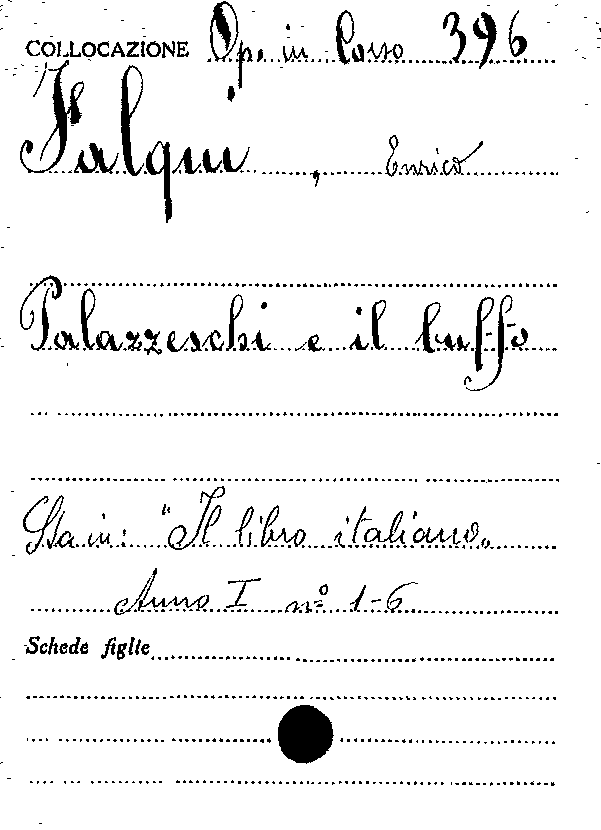 COLLOCAZIONE Op. in Corso 396
Falqui, Enrico
Palazzeschi e il buffo
Sta in: "Il libro italiano„
Anno I nº 1-6
Schede figlie